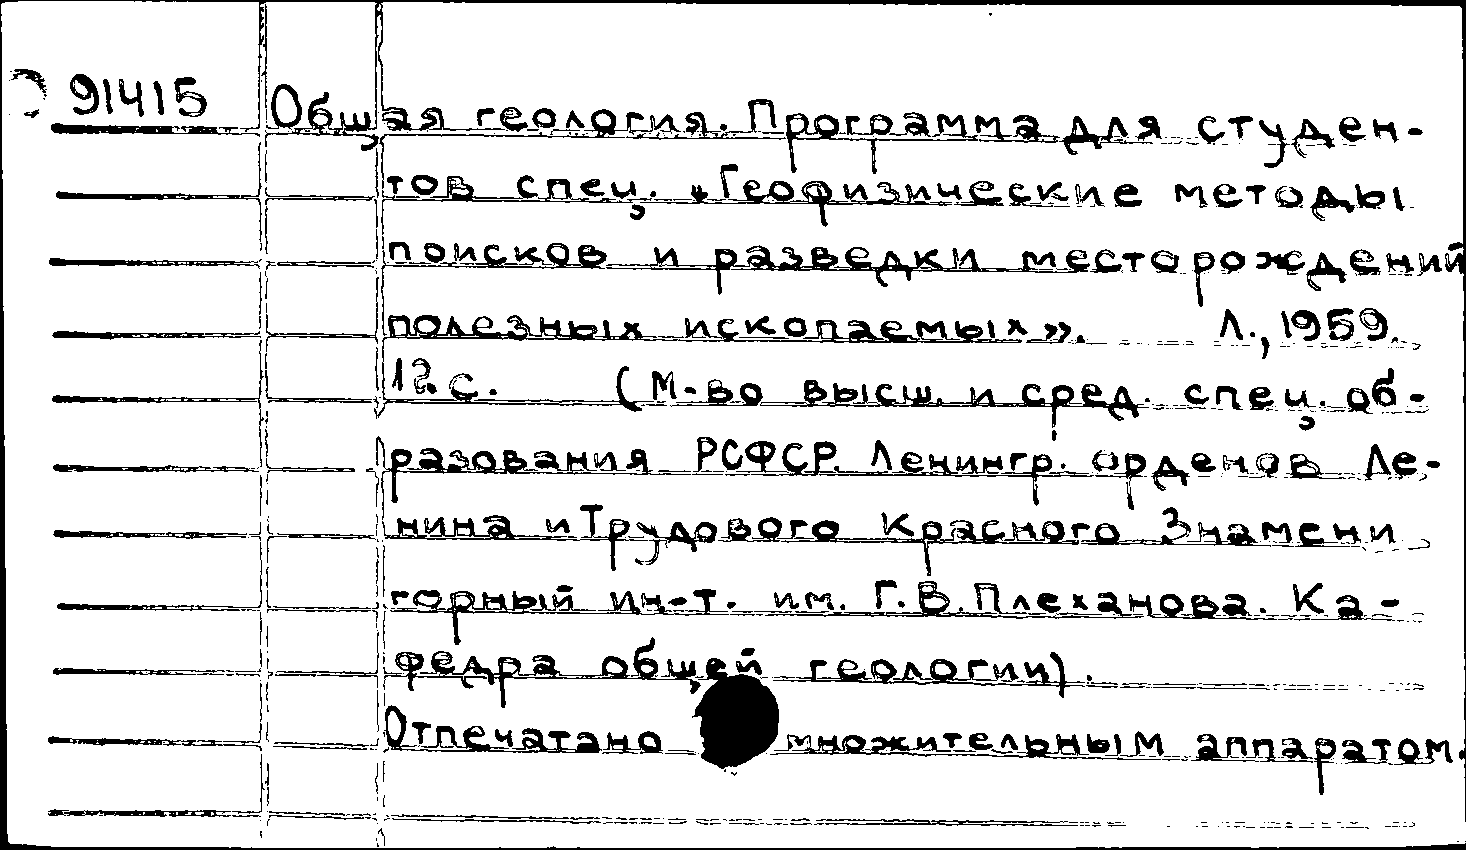 91415 Общая геология. Программа для студен-
тов спец. „Геофизические методы
поисков и разведки месторождений
полезных ископаемых”. Л., 1959.
12 с. (М-во высш. и сред. спец. об-
разования РСФСР. Ленингр. орденов Ле-
нина и Трудового Красного Знамени
горный ин-т. им. Г.В. Плеханова. Ка-
федра общей геологии).
Отпечатано множительным аппаратом.